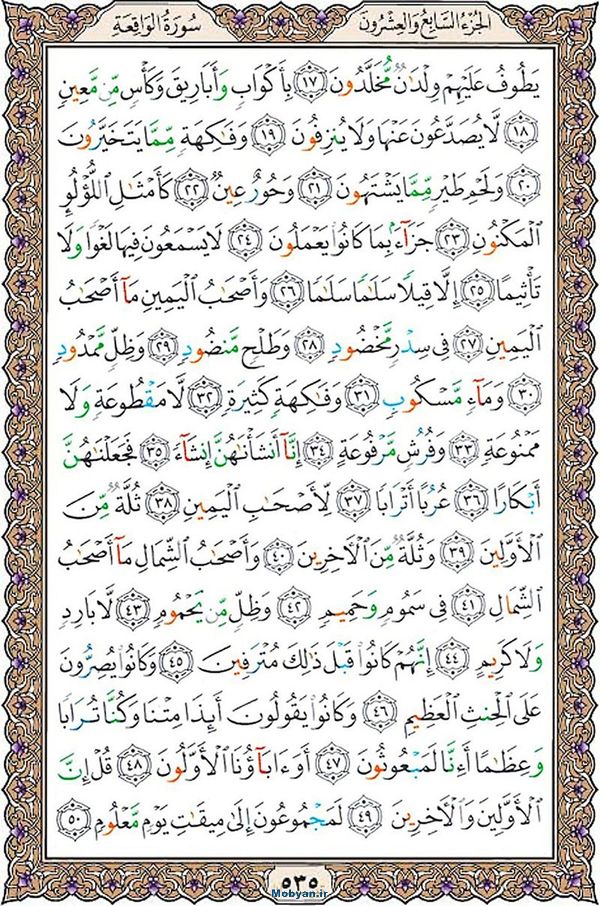 الجزء السابع والعشرون
سورة الواقعة
يَطُوفُ عَلَيْهِمْ وِلْدَٰنٌ مُّخَلَّدُونَ ١٧ بِأَكْوَابٍ وَأَبَارِيقَ وَكَأْسٍ مِّن مَّعِينٍ
١٨ لَّا يُصَدَّعُونَ عَنْهَا وَلَا يُنزِفُونَ ١٩ وَفَٰكِهَةٍ مِّمَّا يَتَخَيَّرُونَ
٢٠ وَلَحْمِ طَيْرٍ مِّمَّا يَشْتَهُونَ ٢١ وَحُورٌ عِينٌ ٢٢ كَأَمْثَٰلِ ٱللُّؤْلُوِٕ
ٱلْمَكْنُونِ ٢٣ جَزَآءً بِمَا كَانُوا۟ يَعْمَلُونَ ٢٤ لَا يَسْمَعُونَ فِيهَا لَغْوًا وَلَا
تَأْثِيمًا ٢٥ إِلَّا قِيلًا سَلَٰمًا سَلَٰمًا ٢٦ وَأَصْحَٰبُ ٱلْيَمِينِ مَآ أَصْحَٰبُ
ٱلْيَمِينِ ٢٧ فِى سِدْرٍ مَّخْضُودٍ ٢٨ وَطَلْحٍ مَّنضُودٍ ٢٩ وَظِلٍّ مَّمْدُودٍ
٣٠ وَمَآءٍ مَّسْكُوبٍ ٣١ وَفَٰكِهَةٍ كَثِيرَةٍ ٣٢ لَّا مَقْطُوعَةٍ وَلَا
مَمْنُوعَةٍ ٣٣ وَفُرُشٍ مَّرْفُوعَةٍ ٣٤ إِنَّآ أَنشَأْنَٰهُنَّ إِنشَآءً ٣٥ فَجَعَلْنَٰهُنَّ
أَبْكَارًا ٣٦ عُرُبًا أَتْرَابًا ٣٧ لِّأَصْحَٰبِ ٱلْيَمِينِ ٣٨ ثُلَّةٌ مِّنَ
ٱلْأَوَّلِينَ ٣٩ وَثُلَّةٌ مِّنَ ٱلْءَاخِرِينَ ٤٠ وَأَصْحَٰبُ ٱلشِّمَالِ مَآ أَصْحَٰبُ
ٱلشِّمَالِ ٤١ فِى سَمُومٍ وَحَمِيمٍ ٤٢ وَظِلٍّ مِّن يَحْمُومٍ ٤٣ لَّا بَارِدٍ
وَلَا كَرِيمٍ ٤٤ إِنَّهُمْ كَانُوا۟ قَبْلَ ذَٰلِكَ مُتْرَفِينَ ٤٥ وَكَانُوا۟ يُصِرُّونَ
عَلَى ٱلْحِنثِ ٱلْعَظِيمِ ٤٦ وَكَانُوا۟ يَقُولُونَ أَئِذَا مِتْنَا وَكُنَّا تُرَابًا
وَعِظَٰمًا أَءِنَّا لَمَبْعُوثُونَ ٤٧ أَوَءَابَآؤُنَا ٱلْأَوَّلُونَ ٤٨ قُلْ إِنَّ
ٱلْأَوَّلِينَ وَٱلْءَاخِرِينَ ٤٩ لَمَجْمُوعُونَ إِلَىٰ مِيقَٰتِ يَوْمٍ مَّعْلُومٍ ٥٠
٥٣٥
Mobyan.ir